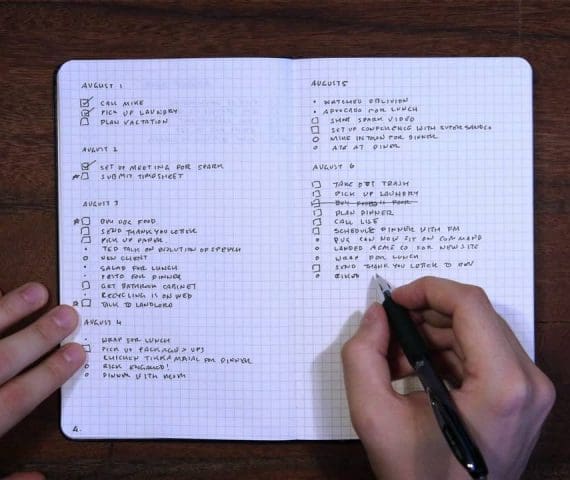 AUGUST 1
CALL MIKE
PICK UP LAUNDRY
PLAN VACTATION
AUGUST 2
SET UP MEETING FOR SPARK
SUBMIT TIMESHEET
AUGUST 3
BUY DOG FOOD
SEND THANK YOU LETTER
PICK UP PAPER
TED TALK ON EVOLUTION OF SPEECH
NEW CLIENT
SALAD FOR LUNCH
PESTO FOR DINNER
GET BATHROOM CABINET
RECYCLING IS ON WED
TALK TO LANDLORD
AUGUST 4
WRAP FOR LUNCH
PICK UP PACKAGE > UPS
CHICKEN TIKKA MASALA FOR DINNER
RICK ENGAGED!
DINNER WITH
4.
AUGUST 5
WATCHED OBLIVION
AVOCADO FOR LUNCH
SHOOT SPARK VIDEO
SET UP CONFERENCE WITH
MIKE IN TOWN FOR DINNER
ATE AT DINER
AUGUST 6
TAKE OUT TRASH
PICK UP LAUNDRY
BUY FOOD
PLAN DINNER
CALL LISE
SCHEDULE DINNER WITH
CAN NOW SIT ON COMMAND
LANDED ACME CO FOR NEW SITE
WRAP FOR LUNCH
SEND THANK YOU LETTER TO